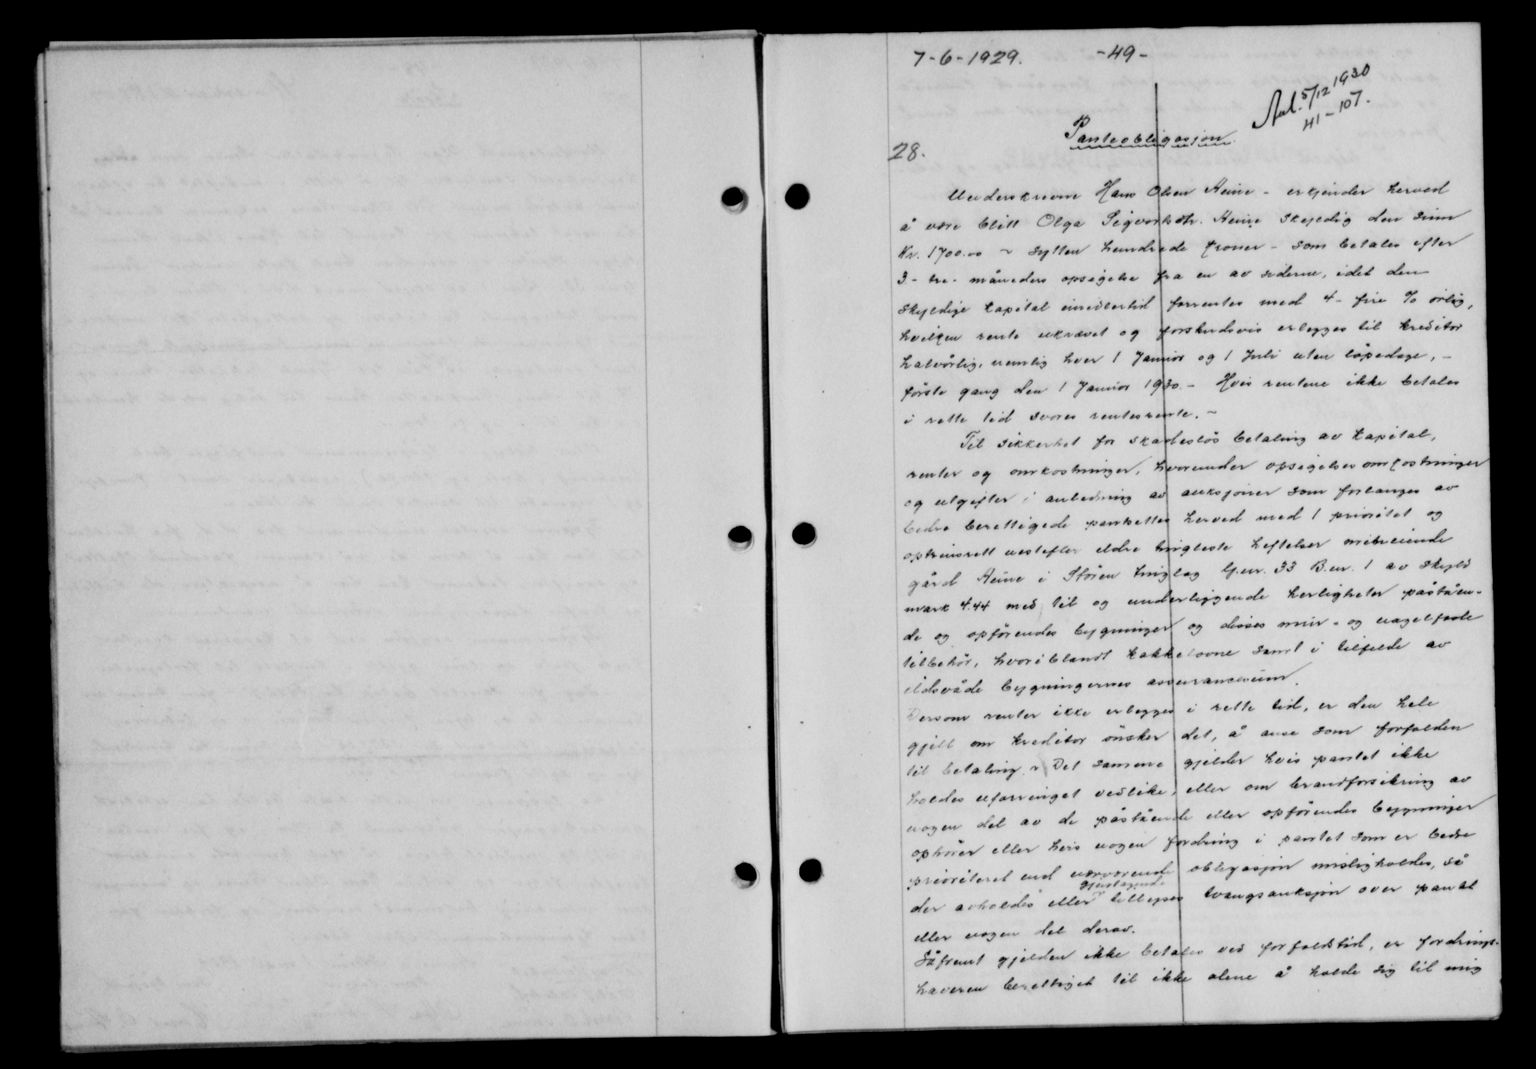 7-6-1929. -49-
Avl. 5/12 1930
41-107.
28. Panteobligasjon
Underskrevne Hans Olsen Aune - erkjender herved
å være blitt Olga Sigvarhsdtr. Aune skyldig den sum
Kr. 1700.00 ~ sytten hundrede kroner - som betales efter
3- tre- måneders opsigelse fra en av siderne, idet den
skyldige kapital imidlertid forrentes med 4- fire % årlig,
hvilken rente ukrævet og forskudsvis erlegges til kreditor
halvårlig, nemlig hver 1 Januar og 1 Juli uten løpedage, -
første gang den 1 Januar 1930 - Hvis rentene ikke betales
i rette tid svares rentesrente. ~
Til sikkerhet for skadesløs betaling av kapital,
renter og omkostninger, hvorunder opsigelses omkostninger
og utgifter i anledning av auksjoner som forlanges av
bedre berettigede pantsettes herved med 1 prioritet og
optrinsrett nestefter eldre tingleste heftelser min eiende
gård Aune i Støren tinglag G.nr. 33 B.nr. 1 av skyld
mark 4.44 med til og underliggende herligheter påståen-
de og opførendes bygninger og disses mur- og nagelfaste
tilbehør, hvoriblandt kakkelovne samt i tilfelde av
ildsvåde bygningernes assuransesum.
Dersom renter ikke erlegges i rette tid, er den hele
gjeld om kreditor ønsker det, å anse som forfalden
til betaling ~ Det samme gjelder hvis pantet ikke
holdes uforringet vedlike, eller om brandforsikring av
nogen del av de påstående eller opførendes bygninger
ophører eller hvis nogen fordring i pantet som er bedre
prioriteret end nærværende obligasjon misligholdes, så
der avholdes eller tillyses tvangsauksjon over pantet
eller nogen del derav.
Såfremt gjelden ikke betales ved forfaldstid, er fordrings-
haveren berettiget til ikke alene å holde sig til mig